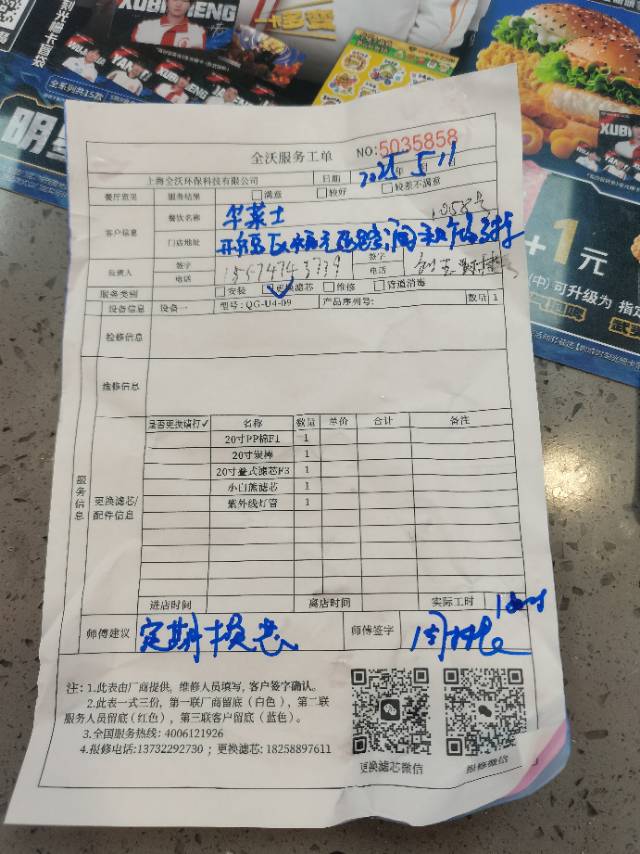 XUBI
ENG
刻光栅卡盲袋
全系列共15款
明
XUBI
+1元
(中)可升级为 指定
全沃服务工单
NO:5035858
上海全沃环保科技有限公司 日期 2025年5 11
餐厅意见 服务结果 满意 较好 较差不满意
客户信息 餐饮名称 华莱士
门店地址
负责人 签字 电话 签字 电话
服务类别 安装 更换滤芯 维修 管道消毒
设备信息 设备一 型号: QG-U4-09 产品序列号: 数量 1
检修信息
维修信息
服务信息
更换滤芯/配件信息
是否更换请打✓ 名称 数量 单价 合计 备注
20寸PP棉F1 1
20寸炭棒 1
20寸叠式滤芯F3 1
小白熊滤芯 1
紫外线灯管 1
进店时间 离店时间 实际工时
师傅建议 定期换芯 师傅签字
注: 1.此表由厂商提供, 维修人员填写, 客户签字确认。
2.此表一式三份, 第一联厂商留底(白色), 第二联
服务人员留底(红色), 第三联客户留底(蓝色)。
3.全国服务热线: 4006121926
4.报修电话:13732292730 ; 更换滤芯: 18258897611
更换滤芯微信 报修微信